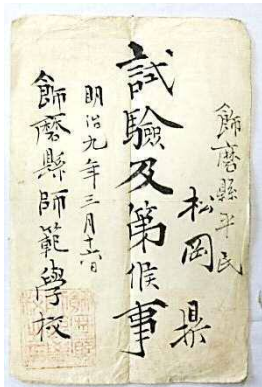 飾磨縣平民
松岡 鼎
試驗及第候事
明治九年三月十六日
飾磨縣師範學校